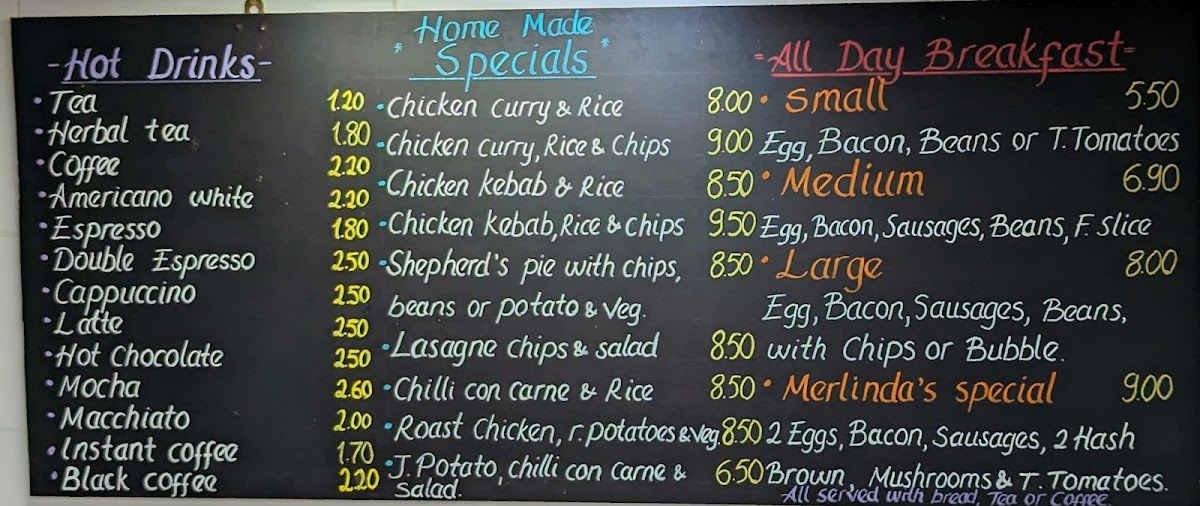 -Hot Drinks-
• Tea 1.20
• Herbal tea 1.80
• Coffee 2.20
• Americano white 2.20
• Espresso 1.80
• Double Espresso 2.50
• Cappuccino 2.50
• Latte 2.50
• Hot Chocolate 2.50
• Mocha 2.60
• Macchiato 2.00
• Instant coffee 1.70
• Black coffee 2.20
Home Made
* Specials *
• Chicken curry & Rice 8.00
• Chicken curry, Rice & Chips 9.00
• Chicken kebab & Rice 8.50
• Chicken kebab, Rice & Chips 9.50
• Shepherd's pie with chips, 8.50
beans or potato & veg.
• Lasagne chips & salad 8.50
• Chilli con carne & Rice 8.50
• Roast Chicken, r. potatoes & veg. 8.50
• J. Potato, chilli con carne & 6.50
Salad.
=All Day Breakfast=
• Small 5.50
Egg, Bacon, Beans or T. Tomatoes
• Medium 6.90
Egg, Bacon, Sausages, Beans, F. Slice
• Large 8.00
Egg, Bacon, Sausages, Beans,
with Chips or Bubble.
• Merlinda's special 9.00
2 Eggs, Bacon, Sausages, 2 Hash
Brown, Mushrooms & T. Tomatoes.
All served with bread, Tea or Coffee.